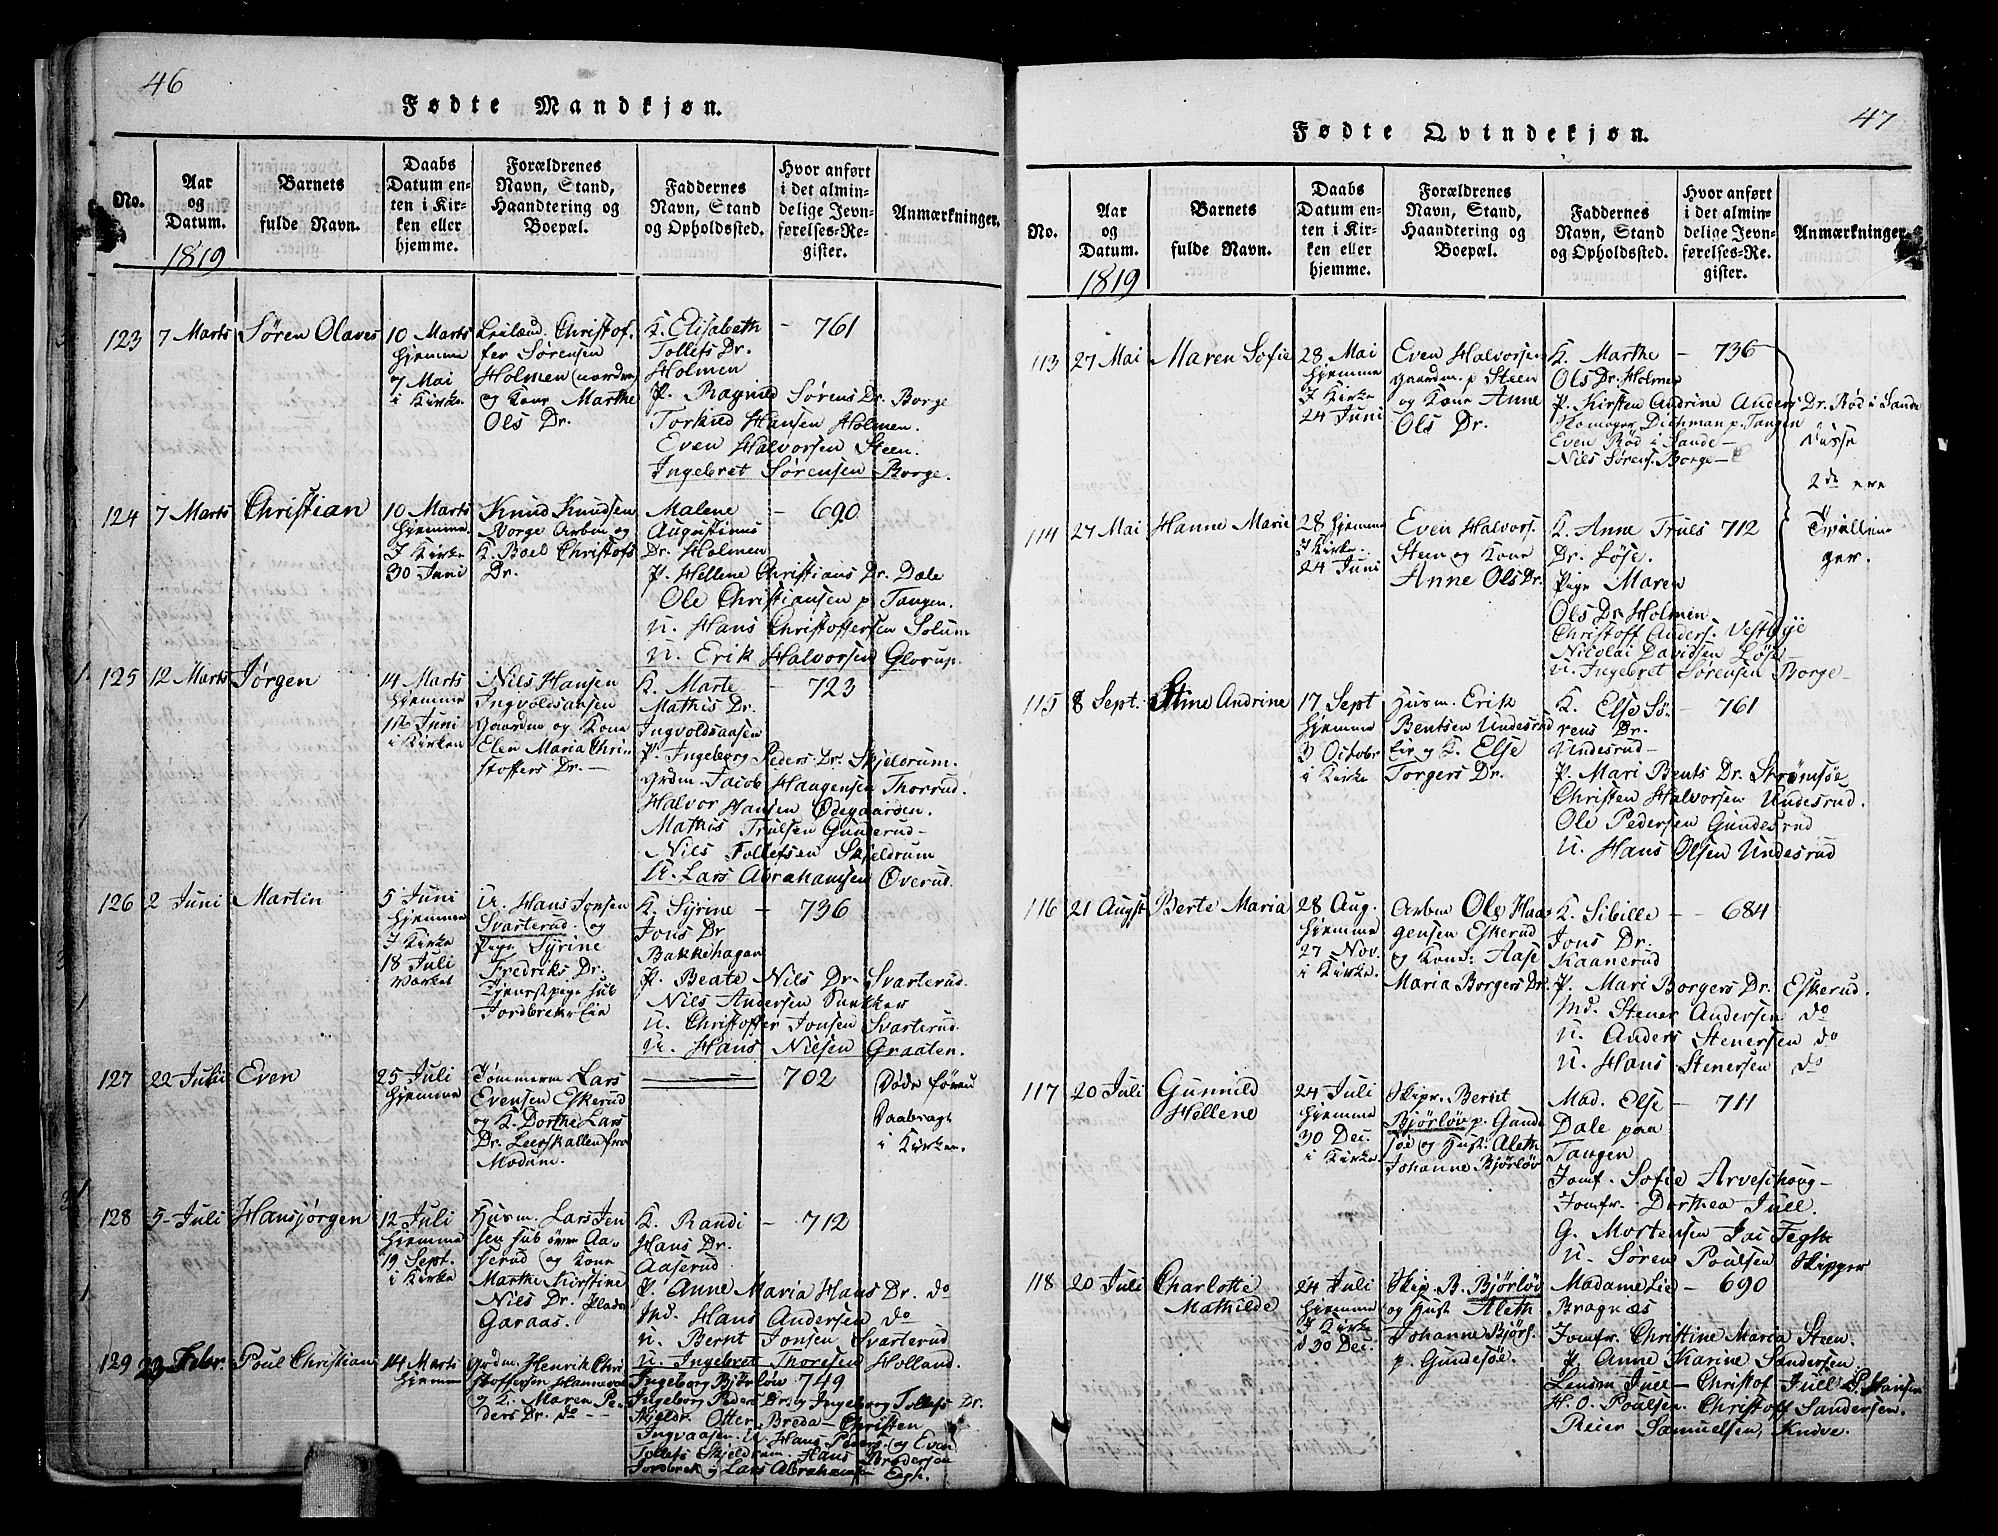 46
Fødte Mandkjøn.
No.
Aar
og
Datum.
1819
Barnets
fulde Navn.
Daabs
Datum en-
ten i Kir-
ken eller
hjemme.
Forældrenes
Navn, Stand,
Haandtering og
Boepæl.
Faddernes
Navn, Stand
og Opholdssted.
Hvor anført
i det almin-
delige Jevn-
førelses-Re-
gister.
Anmærkninger.
123
7 Marts
Søren Olaves
10 Marts
hjemme
7 Mai
i Kirke
Leilænd. Christof-
fer Sørensen
Holmen (nordre)
og Kone Marthe
Ols Dr.
K. Elisabeth
Tollefs Dr.
Holmen
P. Ragnild Sørens Dr. Borge
Torkild Hansen Holmen.
Even Halvorsen Steen.
Ingebret Sørensen Borge.
761
124
7 Marts
Christian
10 Marts
hjemme
I Kirke
30 Juni
Knud Knudsen
Borge Arbm og
K. Boel Christofs
Dr.
Malene
Augustinus
Dr. Holmen
P. Hellene Christians Dr. Dale
Ole Christiansen p. Tangen.
U. Hans Christoffersen Solum
U. Erik Halvorsen Glorup.
690
125
12 Marts
Jørgen
14 Marts
hjemme
16 Juni
i Kirken
Nils Hansen
Ingvoldsaasen
Gaardm og Kone
Elen Maria Chri-
stoffers Dr. —
K. Marte
Mathis Dr.
Ingvoldsaasen
P. Ingeborg Peders Dr. Skjeldrum.
Grdm. Jacob Haagensen Thorrud.
Halvor Hansen Ødegaarden.
Mathis Trulsen Gunderud—
Nils Tollefsen Skjeldrum
U. Lars Abrahamsen Overud.
723
126
2 Juni
Martin
5 Juni
hjemme
I Kirke
18 Juli
Værket
U. Hans Jonsen
Svarterud og
Pige Syrine
Fredriks Dr.
Tjenstpige sub
Jordbrek-Eie
K. Syrine
Jons Dr
Bakkehagen
P. Beate Nils Dr. Svarterud.
Nils Andersen Sukker
U. Christoffer Jonsen Svarterud.
U. Hans Nilsen Graaten.
736
127
22 Julii
Even
25 Juli
hjemme
Tømmerm. Lars
Evensen Eskerud
og K. Dorthe Lars
Dr. Leerskallen fra
Modum.
702
Døde førend
Daabragt
i Kirken.
128
5 Juli
Hansjørgen
12 Juli
hjemme
19 Sept.
i Kirke
Husm. Lars Jen
sen sub øvre Aa-
serud og Kone
Marthe Kirstine
Nils Dr. Plads
Garaas.
K. Randi
Hans Dr.
Aaserud
P. Anne Maria Hans Dr. do
Md. Hans Andersen do
U. Bernt Jonsen Svarterud
U. Ingebret Thoresen Holland.
712
129
23 Febr.
Poul Christian
14 Marts
hjemme
Grdm. Henrik Chri
stoffersen Hannevold
og K. Maren Pe
ders Dr. do —
Ingeborg Bjørløv
749
Ingeborg Peders Dr. og Ingeborg Tollefs Dr.
Skjeldr. Otter Breda— Christen
Ingvaasen. U. Hans Peders. og Even
Tollefs Skjeldrum. Hans Brodersen
Jordbrek og Lars Abrahamsen
47
Fødte Qvindekjøn.
No.
Aar
og
Datum.
1819
Barnets
fulde Navn.
Daabs
Datum en-
ten i Kir-
ken eller
hjemme.
Forældrenes
Navn, Stand,
Haandtering og
Boepæl.
Faddernes
Navn, Stand
og Opholdssted.
Hvor anført
i det almin-
delige Jevn-
førelses-Re-
gister.
Anmærkninger.
113
27 Mai
Maren Sofie
28 Mai
hjemme
I Kirke
24 Juni
Even Halvorsen
Gaardm. p. Steen
og Kone Anne
Ols Dr.
K. Marthe
Ols Dr. Holmen
P. Kirsten Andrine Anders Dr. Rød i Sande
Skomager Dichman p. Tangen
Even Rød i Sande—
Nils Sørens. Borge—
736
Disse
2de ere
Tvillin
ger.
114
27 Mai
Hanne Marie
28 hjemme
I Kirke
24 Juni
Even Halvors.
Steen og Kone
Anne Ols Dr.
K. Anne Truls
Dr. Løse.
Pige Maren
Ols Dr. Holmen
Christoff Anders. Vestbye
Nicolai Davidsen Løse—
U. Ingebret Sørensen Borge—
712
115
8 Sept.
Stine Andrine
17 Sept
hjemme
3 Octobr
i Kirke
Husm. Erik
Bentsen Undesrud
Eie og K. Else
Torgers Dr.
K. Else Sø-
rens Dr.
Undesrud—
P. Mari Bents Dr. Strømsøe
Christen Halvorsen Undesrud.
Ole Pedersen Gundesrud
U. Hans Olsen Undesrud
761
116
21 Augst
Berte Maria
28 Aug.
hjemme
27 Nov.
i Kirke
Arbm Ole Haa-
gensen Eskerud
og Kone: Aase
Maria Borgers Dr.
K. Sibille
Jons Dr.
Kaanerud
P. Mari Borgers Dr. Eskerud.
Md. Stener Andersen do
U. Anders Stenersen do
U. Hans Stenersen do
684
117
20 Juli
Gunnild
Hellene
24 Juli
hjemme
30 Dec.
i Kirke
Skipr. Bernt
Bjørløv p. Gunde
søe og Hust. Aleth
Johanne Bjørløv
Mad. Else
Dale paa
Tangen
Jomf. Sofie Arveschoug—
Jomfr. Dorthea Juell.
G. Mortensen Jai Fegth
U. Søren Poulsen Skipper
711
118
20 Juli
Charlotte
Mathilde
24 Juli
hjemme
I Kirke
d 30 Dec.
Skip. B. Bjørløv
og Hust Aleth
Johanne Bjørs.
p. Gundesøe.
Madame Lie
Bragnæs
Jomfr. Christine Maria Steen.
P. Anne Karine Sandersen.
Lensm. Juell— Christof Juell S. Hansen
H. O. Poulsen. Christoff Sandersen.
Reier Samuelsen, Knive.
690